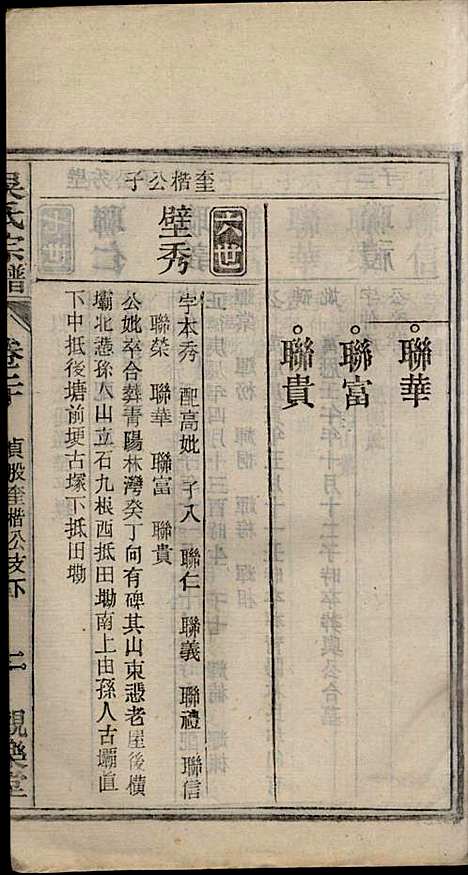 聯華
聯富
聯貴
奎楷公子
六世
壁秀
字本秀 配高妣 子八 聯仁 聯義 聯禮 聯信
聯榮 聯華 聯富 聯貴
公妣卒合葬青陽林灣癸丁向有碑其山東慿老屋後橫
壩北慿孫人山立石九根西抵田塝南上由孫人古壩直
下中抵後塘前埂古塚下抵田塝
吳氏宗譜
卷二十
貞股奎楷公支下
二
觀樂堂